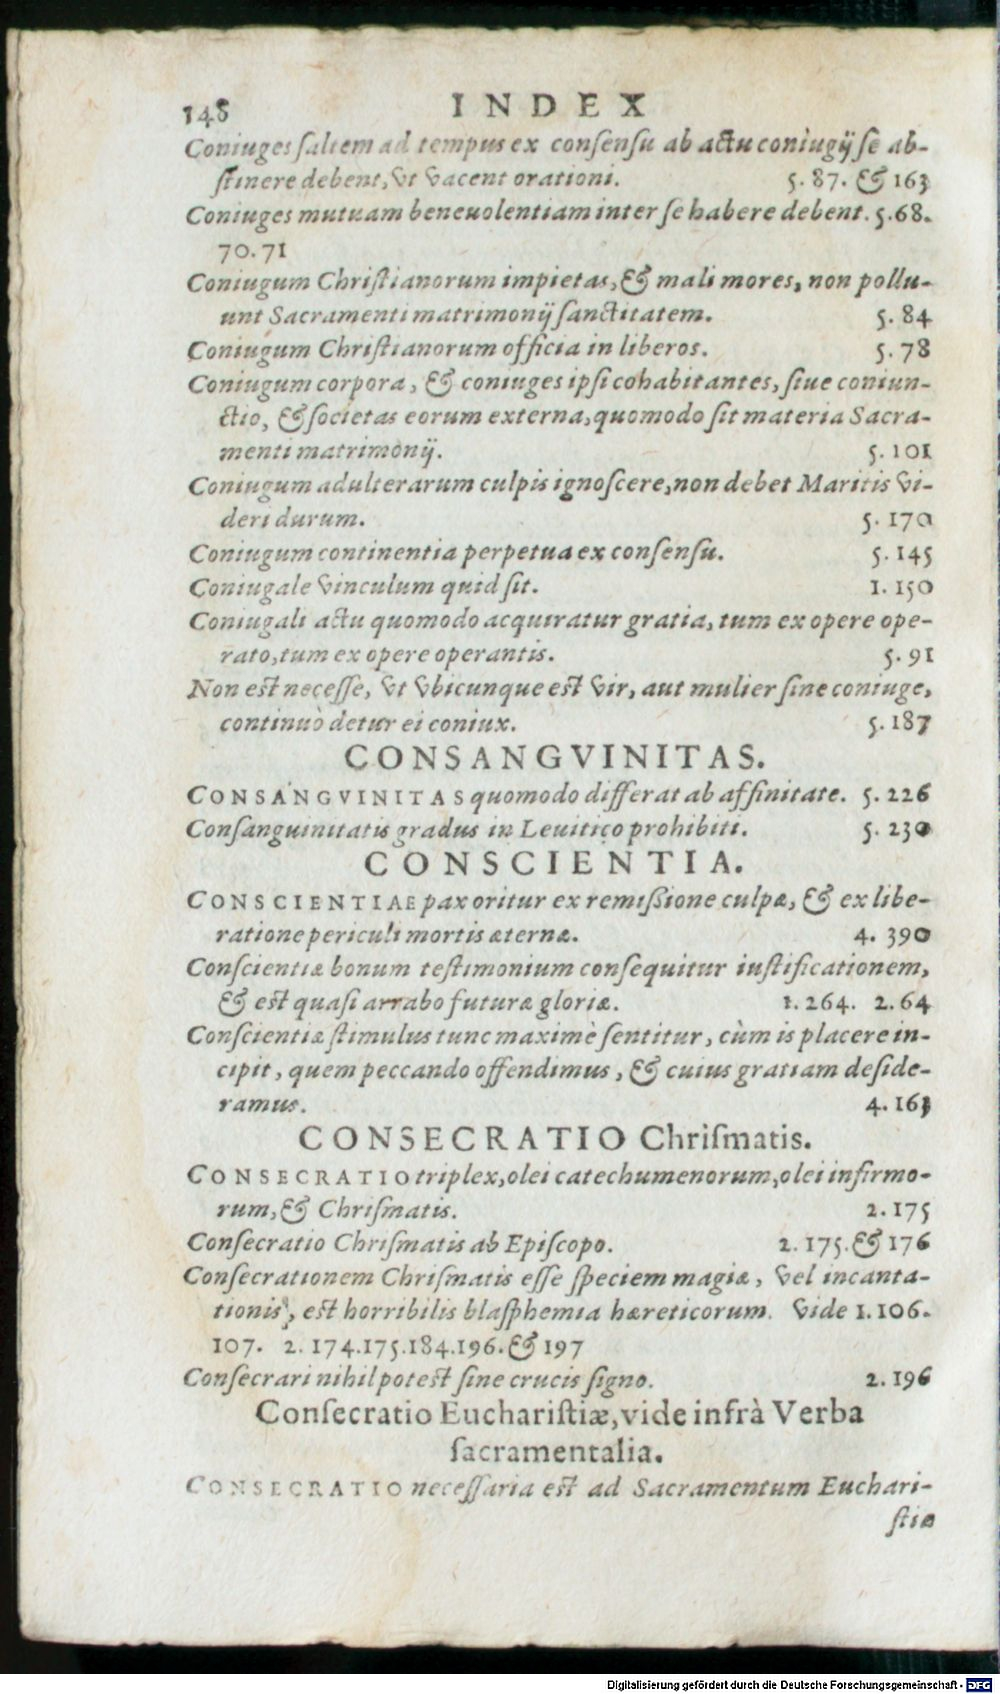 148 INDEX
Coniuges ſaltem ad tempus ex conſenſu ab actu coniugij ſe ab-
ſtinere debent, vt vacent orationi. 5. 87. & 163
Coniuges mutuam beneuolentiam inter ſe habere debent. 5. 68.
70. 71
Coniugum Chriſtianorum impietas, & mali mores, non pollu-
unt Sacramenti matrimonij ſanctitatem. 5. 84
Coniugum Chriſtianorum officia in liberos. 5. 78
Coniugum corpora, & coniuges ipſi cohabitantes, ſiue coniun-
ctio, & ſocietas eorum externa, quomodo ſit materia Sacra-
menti matrimonij. 5. 101
Coniugum adulterarum culpis ignoſcere, non debet Maritis vi-
deri durum. 5. 170
Coniugum continentia perpetua ex conſenſu. 5. 145
Coniugale vinculum quid ſit. 1. 150
Coniugali actu quomodo acquiratur gratia, tum ex opere ope-
rato, tum ex opere operantis. 5. 91
Non eſt neceſſe, vt vbicunque eſt vir, aut mulier ſine coniuge,
continuò detur ei coniux. 5. 187
CONSANGVINITAS.
CONSANGVINITAS quomodo differat ab affinitate. 5. 226
Conſanguinitatis gradus in Leuitico prohibiti. 5. 230
CONSCIENTIA.
CONSCIENTIAE pax oritur ex remiſſione culpæ, & ex libe-
ratione periculi mortis æternæ. 4. 390
Conſcientiæ bonum teſtimonium conſequitur iuſtificationem,
& eſt quaſi arrabo futuræ gloriæ. 1. 264. 2. 64
Conſcientiæ ſtimulus tunc maximè ſentitur, cùm is placere in-
cipit, quem peccando offendimus, & cuius gratiam deſide-
ramus. 4. 163
CONSECRATIO Chriſmatis.
CONSECRATIO triplex, olei catechumenorum, olei infirmo-
rum, & Chriſmatis. 2. 175
Conſecratio Chriſmatis ab Epiſcopo. 2. 175. & 176
Conſecrationem Chriſmatis eſſe ſpeciem magiæ, vel incanta-
tionis, eſt horribilis blaſphemia hæreticorum. Vide 1. 106.
107. 2. 174. 175. 184. 196. & 197
Conſecrari nihil poteſt ſine crucis ſigno. 2. 196
Conſecratio Euchariſtiæ, vide infrà Verba
ſacramentalia.
CONSECRATIO neceſſaria eſt ad Sacramentum Euchari-
ſtiæ
Digitalisierung gefördert durch die Deutsche Forschungsgemeinschaft - DFG